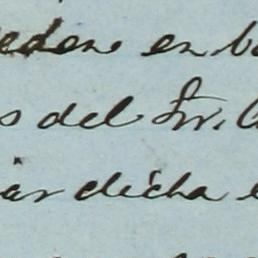 eden en b
s del Sr. C
iar dicha e